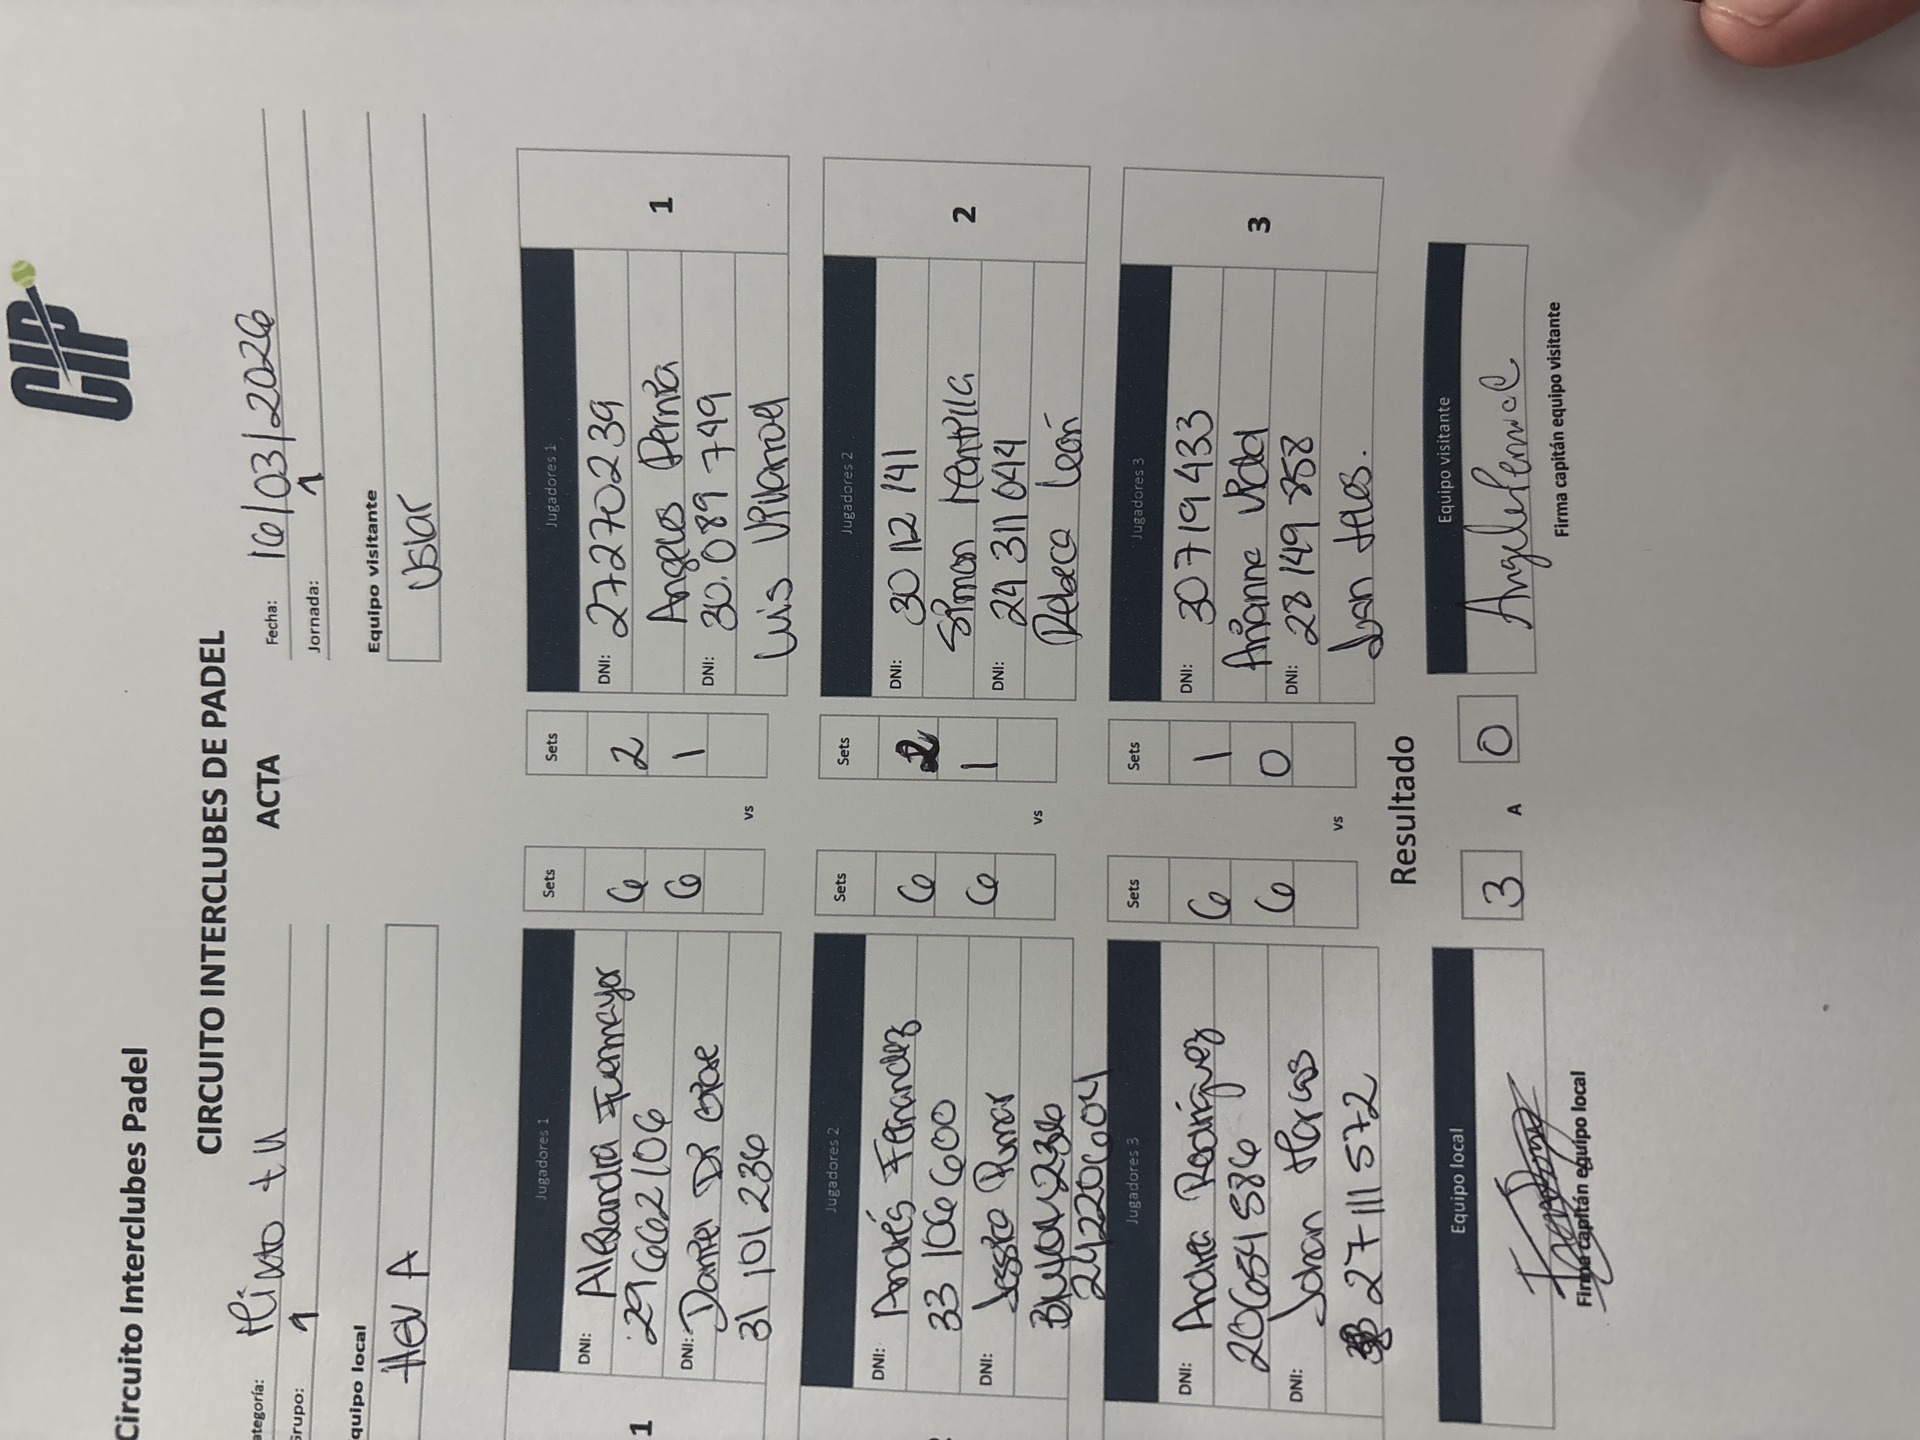 Circuito Interclubes Padel
CIP
CIRCUITO INTERCLUBES DE PADEL
ACTA
ategoría: Mixto +11
Fecha: 16/03/2026
Grupo: 1
Jornada: 1
quipo local
Equipo visitante
HEV A
Usiar
1
Jugadores 1
Sets
Sets
Jugadores 1
1
DNI: Alejandra Fuenmayor
6
2
DNI: 27270239
29662106
6
1
Angeles Pernía
DNI: Daniel Di Gioe
DNI: 30.089 749
31 101 236
vs
Luis Villarroel
Jugadores 2
Sets
Sets
Jugadores 2
2
DNI: Andrés Fernandez
6
2
DNI: 30 12 141
33 106 600
6
1
Simon Mantilla
DNI: Jessica Pumar
DNI: 24 311 644
24220604
vs
Rebeca León
Jugadores 3
Sets
Sets
Jugadores 3
3
DNI: Andrea Rodríguez
6
1
DNI: 30719433
20654586
6
0
Arianna Vidal
DNI: Johan
DNI: 28 149 358
27 111 572
vs
Juan
Resultado
Equipo local
3 A 0
Equipo visitante
Firma capitán equipo local
Firma capitán equipo visitante